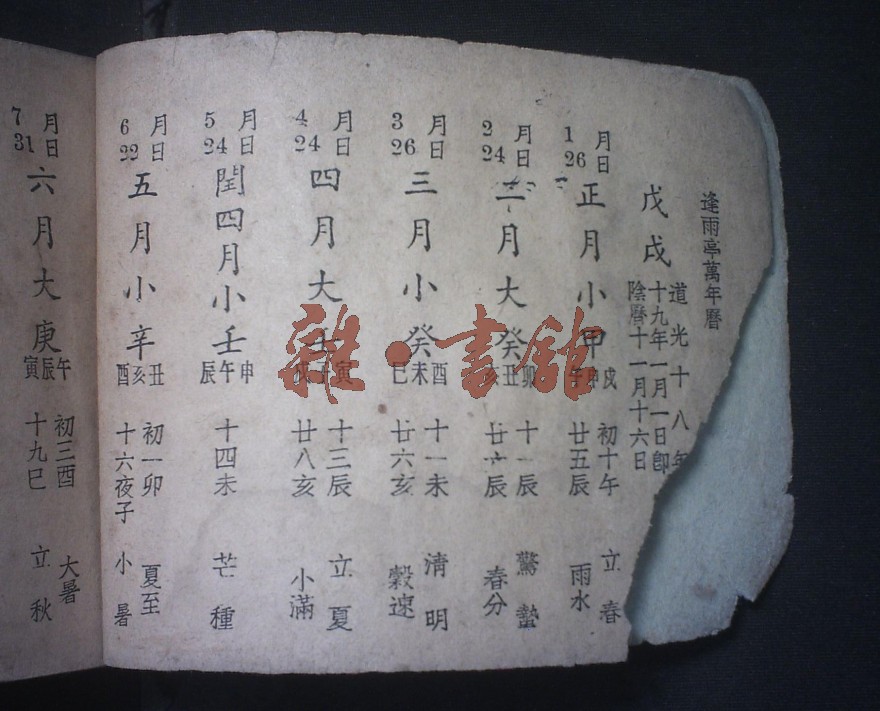 逢雨亭萬年曆
戊戌
道光十八年
十九年一月一日卽
陰曆十一月十六日
1月
26日
正月小甲
戌申午
初十午
廿五辰
立春
雨水
2月
24日
二月大癸
卯丑亥
十一辰
廿六辰
驚蟄
春分
3月
26日
三月小癸
酉未巳
十一未
廿六亥
清明
穀速
4月
24日
四月大壬
寅子戌
十三辰
廿八亥
立夏
小滿
5月
24日
閏四月小壬
申午辰
十四未
芒種
6月
22日
五月小辛
丑亥酉
初一卯
十六夜子
夏至
小暑
7月
31日
六月大庚
午辰寅
初三酉
十九巳
大暑
立秋
雜·書館